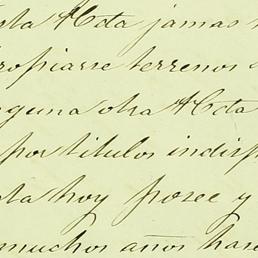 esta Acta jamas
ropiarse terrenos
guna otra Acta
por titulos indisp
ta hoy posee y
muchos años hace